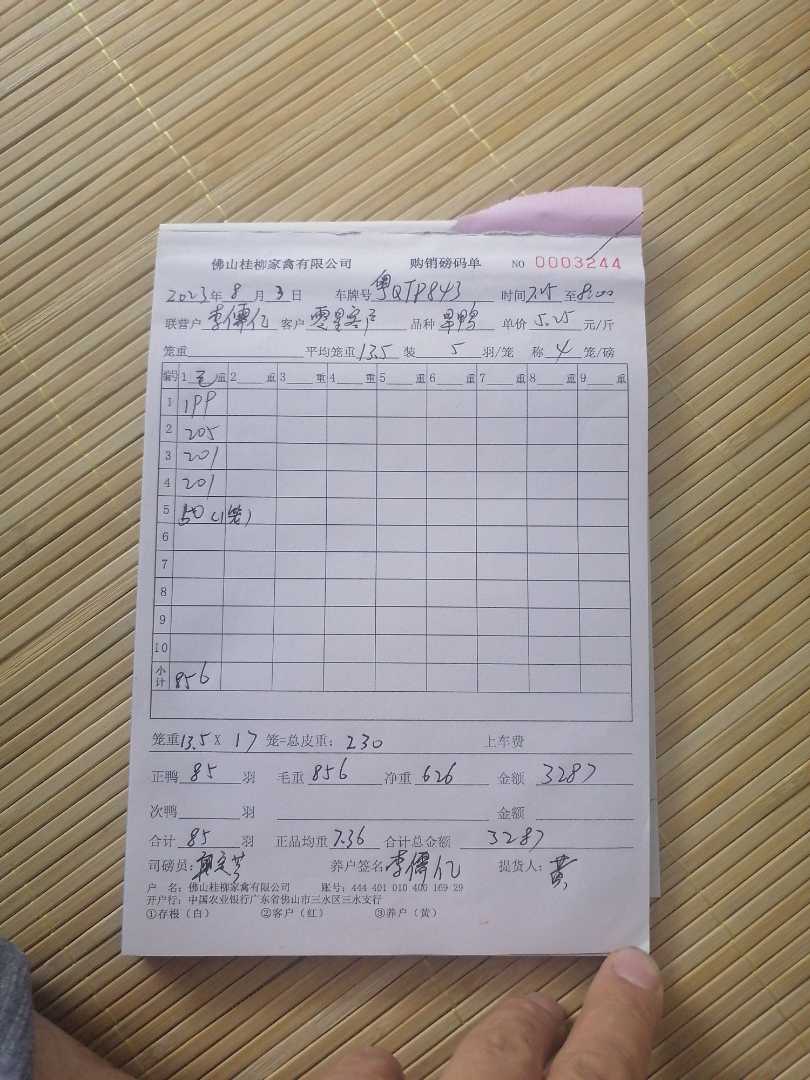 佛山桂柳家禽有限公司 购销磅码单 NO 0003244
2023年 8 月 3 日 车牌号 粤QTP843 时间 7:15 至 8:00
联营户 李儒亿 客户 零星客户 品种 旱鸭 单价 5.25 元/斤
笼重 平均笼重 13.5 装 5 羽/笼 称 4 笼/磅
编号 1 毛 重 2 重 3 重 4 重 5 重 6 重 7 重 8 重 9 重
1 199
2 205
3 201
4 201
5 50 (1笼)
6
7
8
9
10
小计 856
笼重 13.5 X 17 笼=总皮重: 230 上车费
正鸭 85 羽 毛重 856 净重 626 金额 3287
次鸭 羽 金额
合计 85 羽 正品均重 7.36 合计总金额 3287
司磅员: 养户签名 李儒亿 提货人: 黄
户 名: 佛山桂柳家禽有限公司 账号: 444 401 010 400 169 29
开户行: 中国农业银行广东省佛山市三水区三水支行
①存根（白） ②客户（红） ③养户（黄）